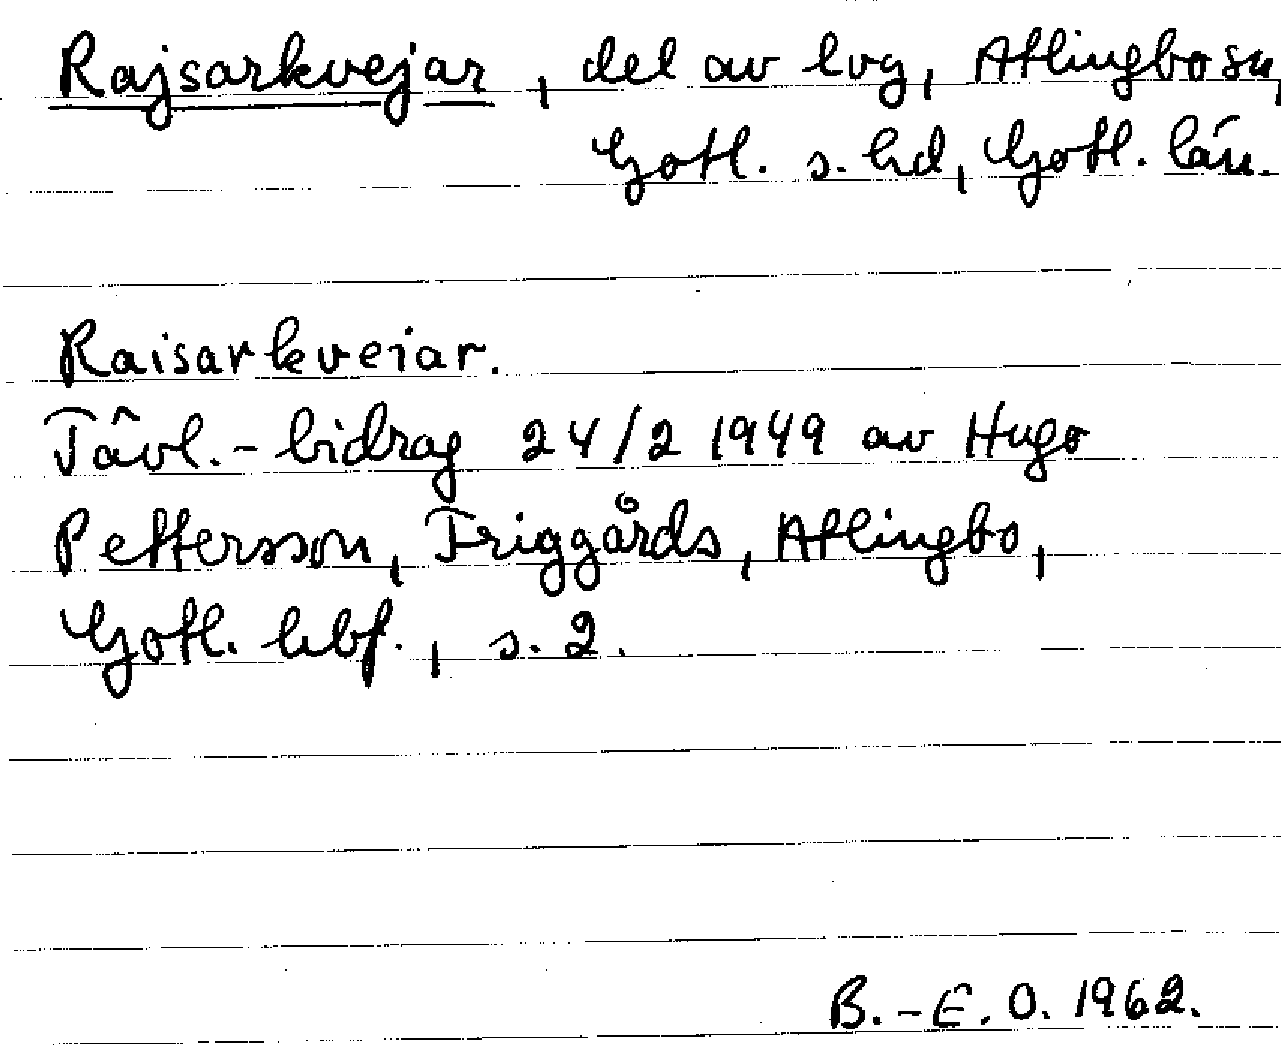 Rajsarkvejar, del av lvg, Atlingbo sn,
Gotl. s. hd, Gotl. län.
Raisarkveiar.
Tävl.-bidrag 24/2 1949 av Hugo
Pettersson, Triggårds, Atlingbo,
Gotl. hbf., s. 2.
B.-E. O. 1962.